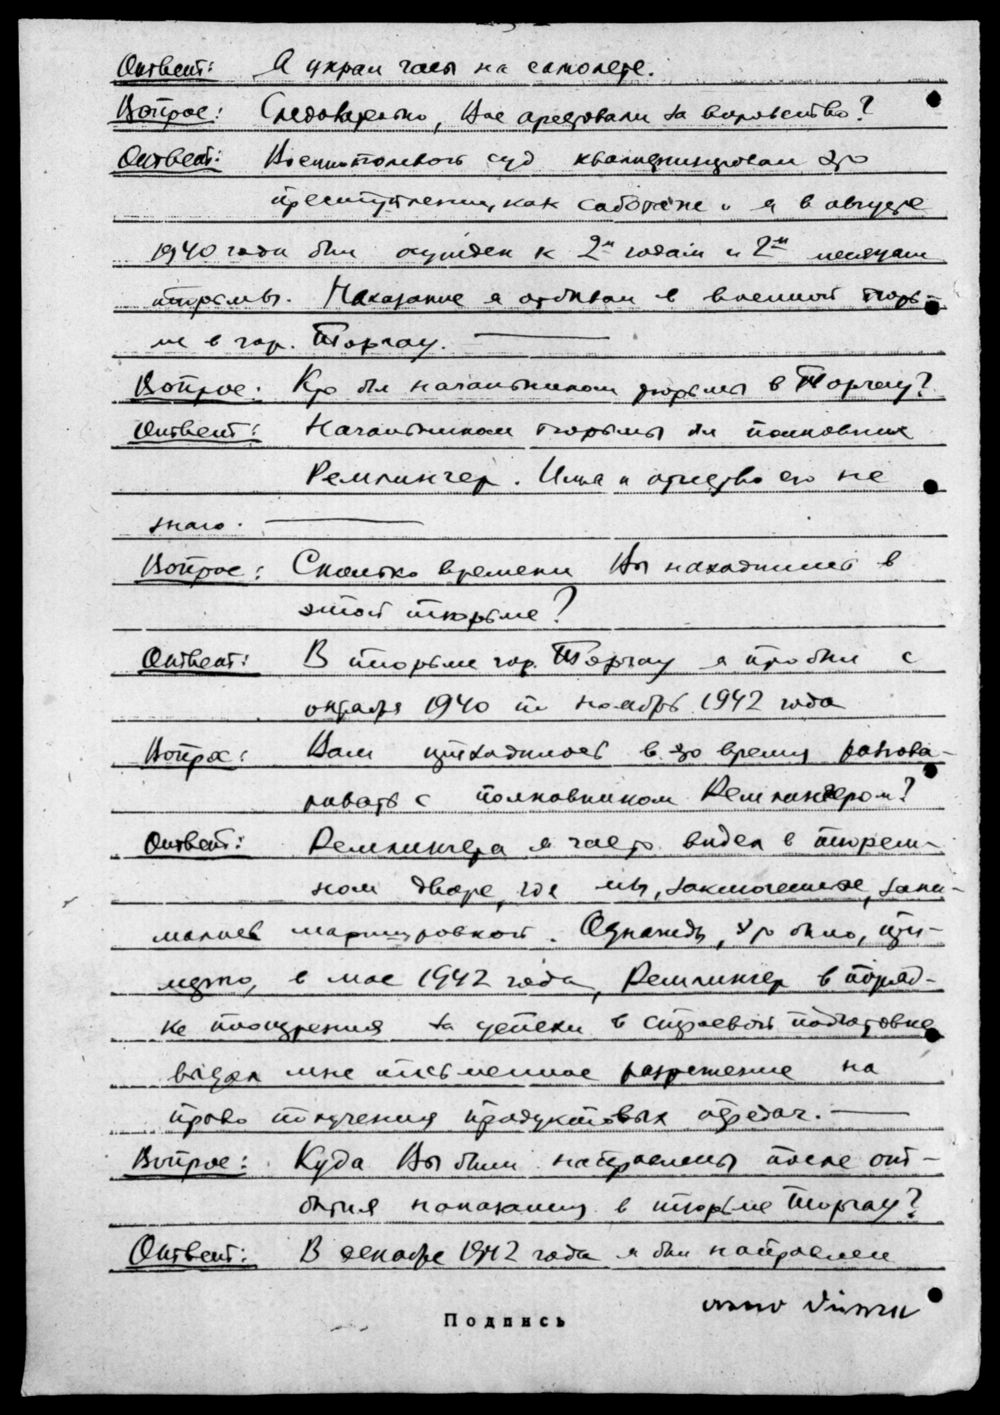 Ответ: Я украл часы на самолете.
Вопрос: Следовательно, Вас арестовали за воровство?
Ответ: Военнополевой суд квалифицировал это
преступление, как саботаж и я в августе
1940 года был осужден к 2м годам и 2м месяцам
тюрьмы. Наказание я отбывал в военной тюрь-
ме в гор. Торгау.
Вопрос: Кто был начальником тюрьмы в Торгау?
Ответ: Начальником тюрьмы был полковник
Ремлингер. Имя и отчество его не
знаю.
Вопрос: Сколько времени Вы находились в
этой тюрьме?
Ответ: В тюрьме гор. Торгау я пробыл с
октября 1940 по ноябрь 1942 года
Вопрос: Вам приходилось в это время разгова-
ривать с полковником Ремлингером?
Ответ: Ремлингера я часто видел в тюрем-
ном дворе, где мы, заключенные, зани-
мались маршировкой. Однажды, это было, при-
мерно, в мае 1942 года, Ремлингер в поряд-
ке поощрения за успехи в строевой подготовке
выдал мне письменное разрешение на
право получения продуктовых передач.
Вопрос: Куда Вы были направлены после от-
бытия наказания в тюрьме Торгау?
Ответ: В декабре 1942 года я был направлен
Подпись